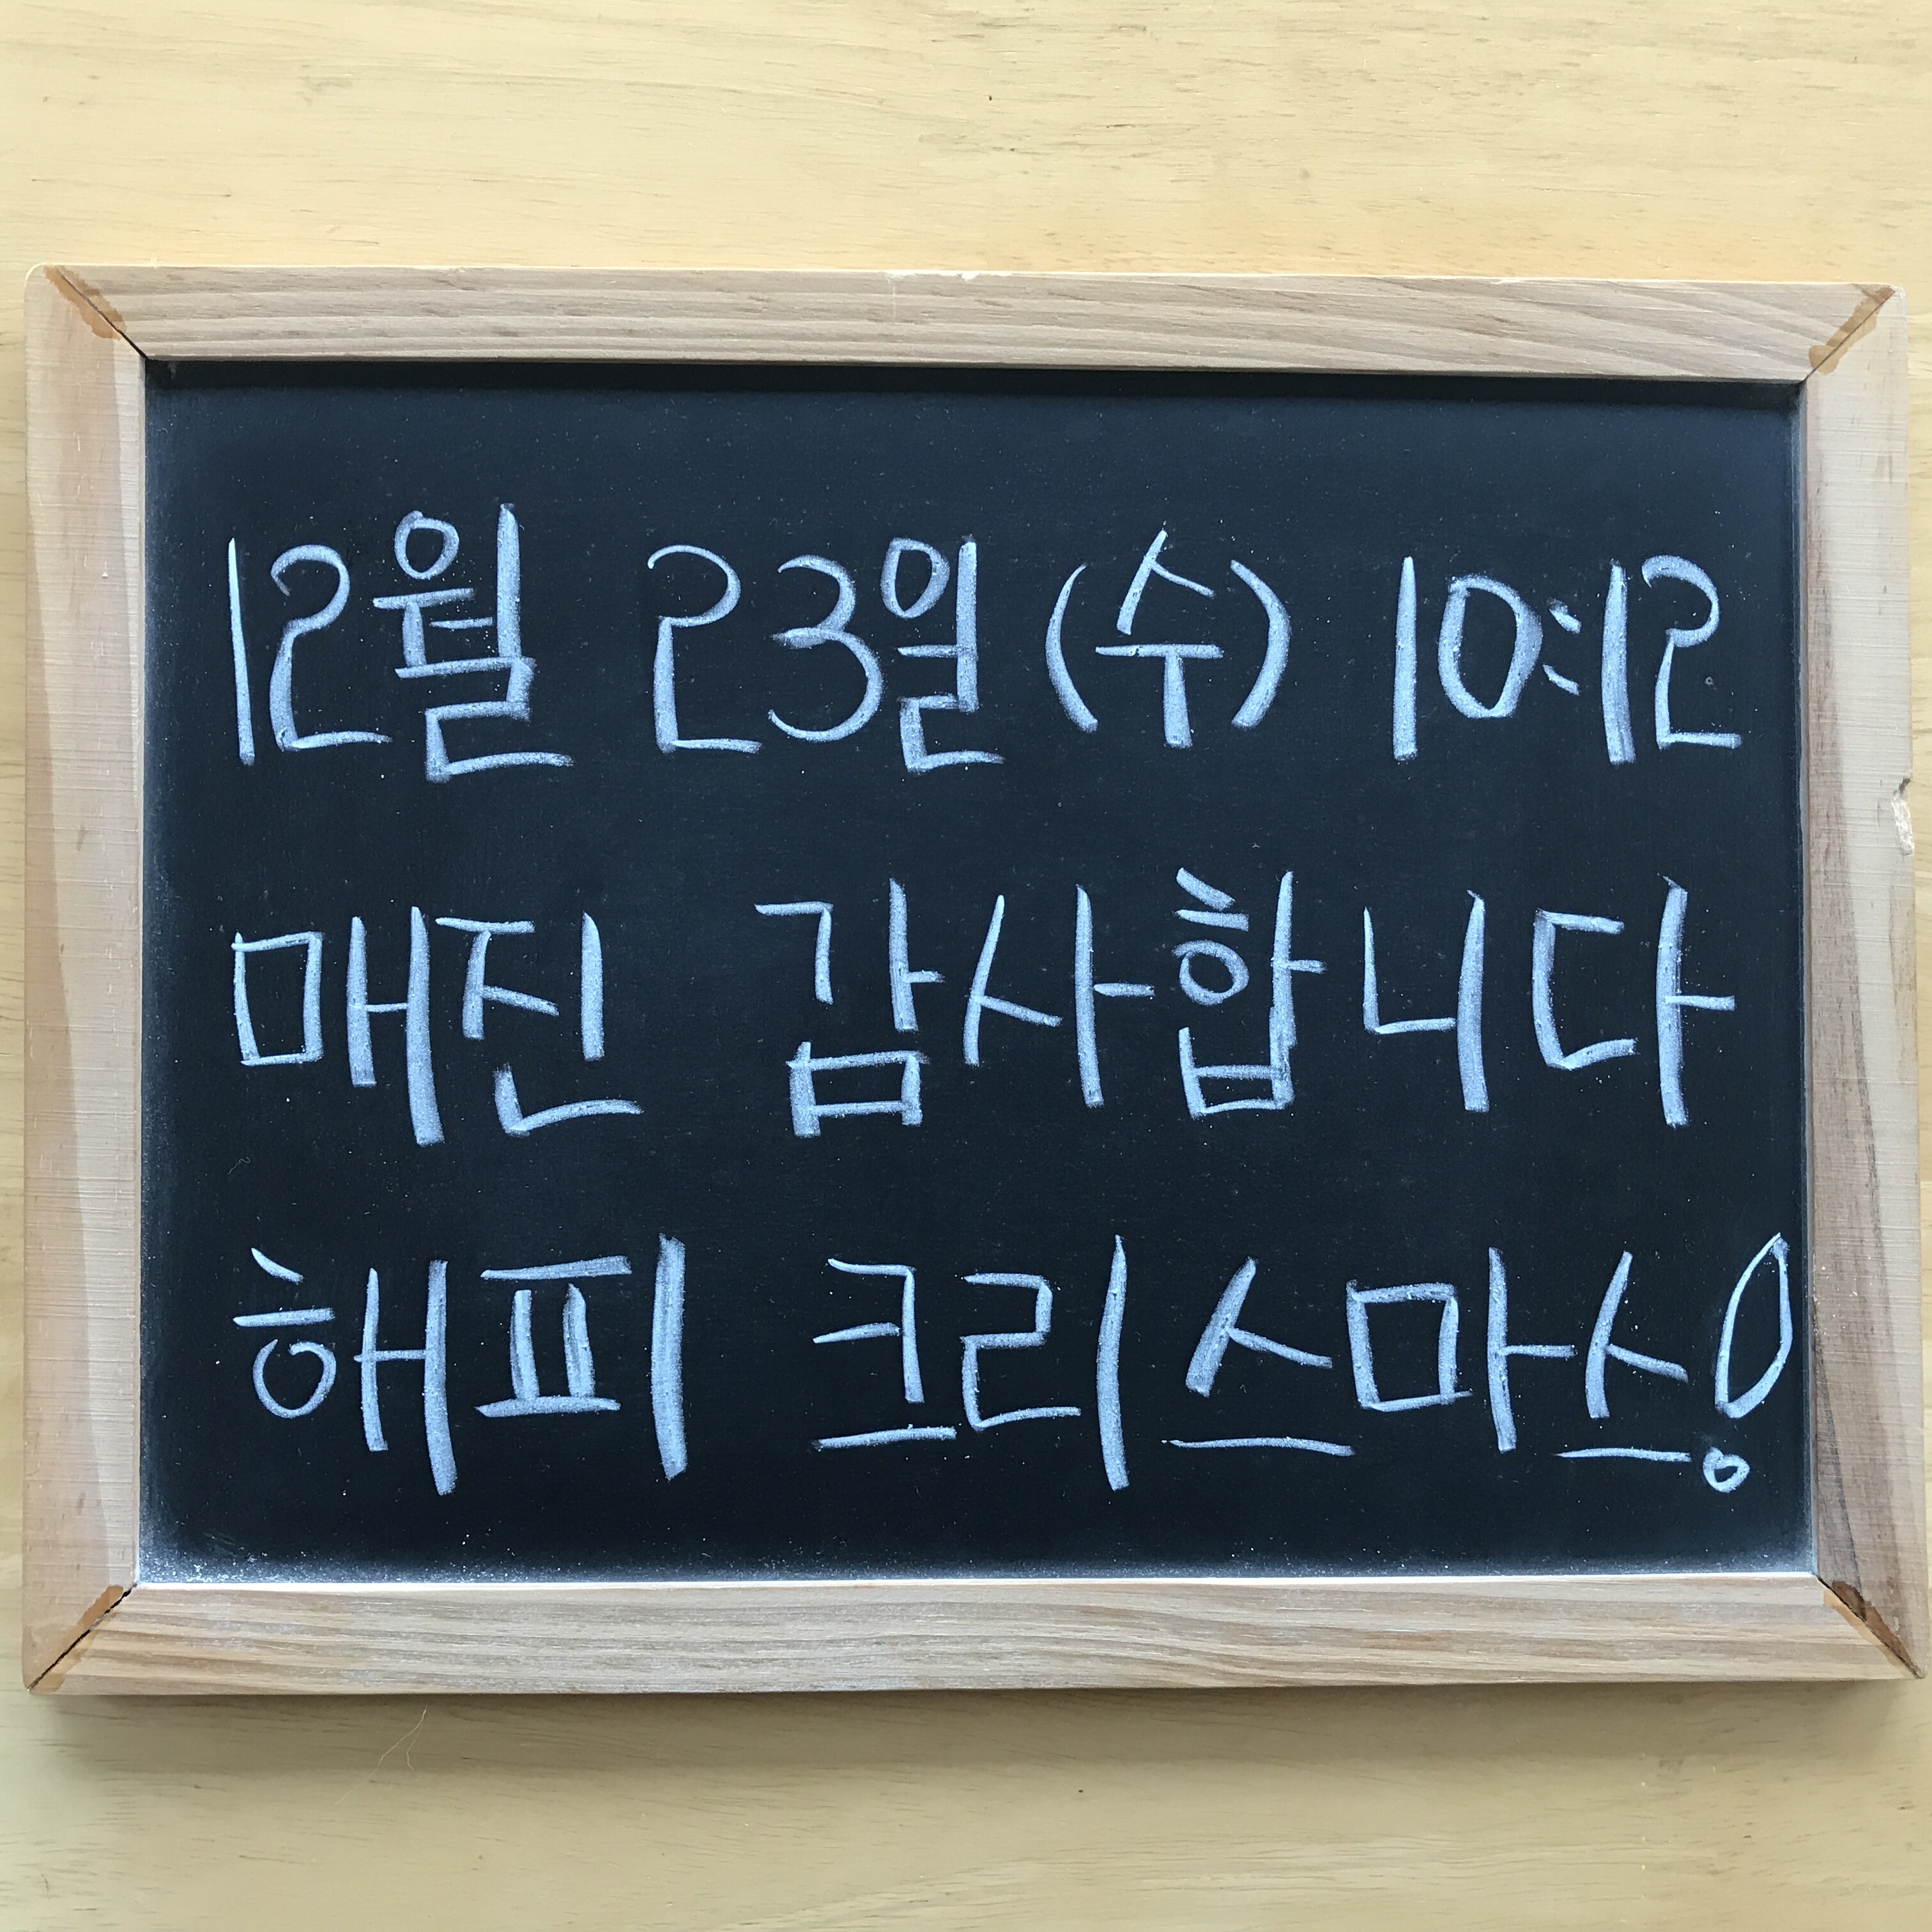 12월 23일(수) 10:12
매진 감사합니다
해피 크리스마스!